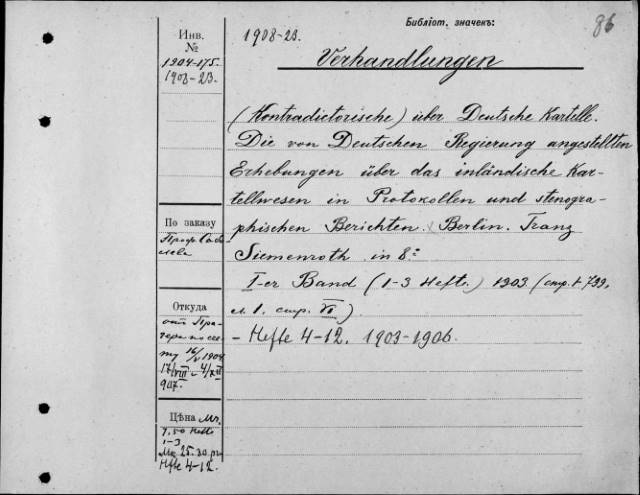 Библіот. значекъ:
86
Инв.
№
1904-175.
1908-23.
1908-23.
Verhandlungen
(Kontradictorische) über Deutsche Kartelle.
Die von Deutschen Regierung angestellten
Erhebungen über das inländische Kar-
tellwesen in Protokollen und stenogra-
phischen Berichten. Berlin. Franz
Siemenroth in 8º
I-er Band (1-3 Heft.) 1903. (стр. 799,
и 1. стр. VI)
- Hefte 4-12. 1903-1906.
По заказу
Проф. Собо
лева
Откуда
отъ Пра-
гера по сче-
ту 16/V 1904
907.
Цѣна Мк.
7,50 Hefte
1-3
Мк. 25.30
Hefte 4-12.